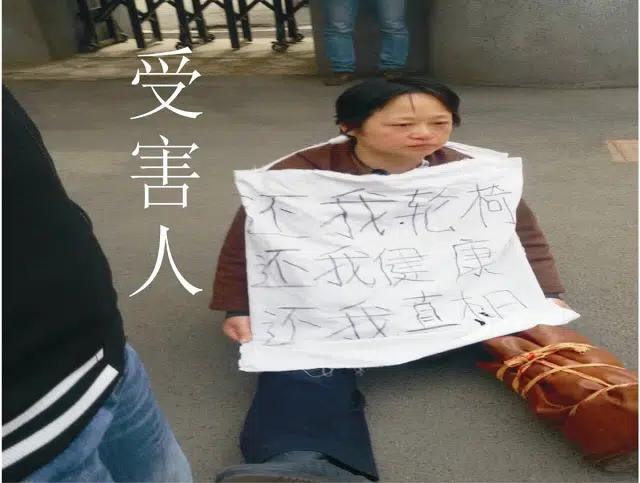 受害人
还我轮椅
还我健康
还我真相